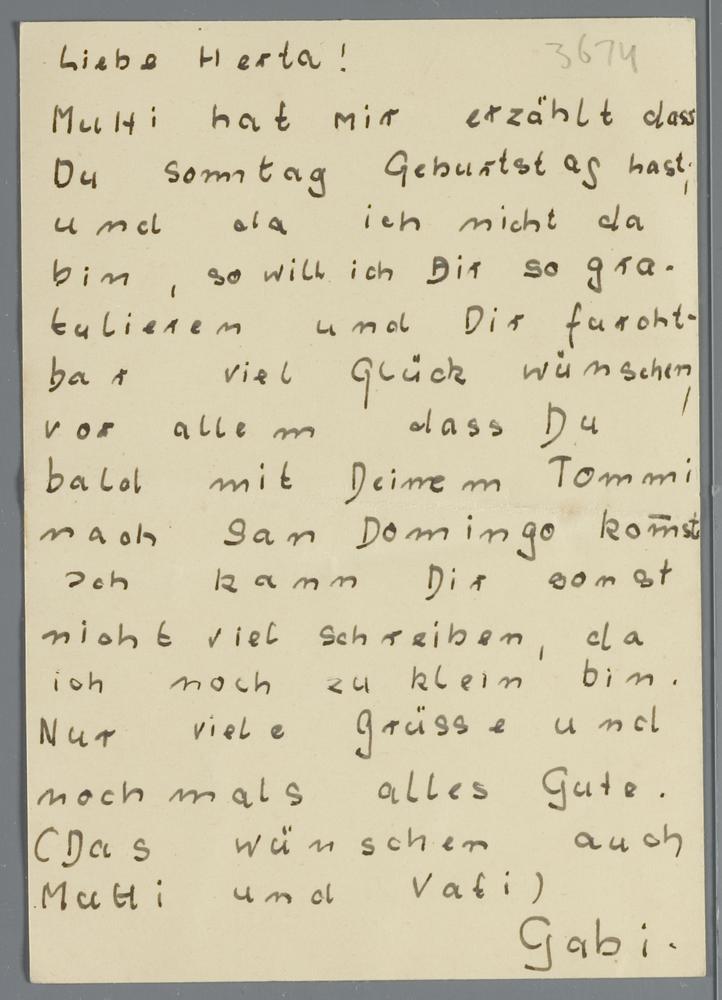 3674
Liebe Herta!
Mutti hat mir erzählt dass
Du sonntag Geburtstag hast,
und da ich nicht da
bin, so will ich Dir so gra-
tulieren und Dir furcht-
bar viel Glück wünschen,
vor allem dass Du
bald mit Deinem Tommi
nach San Domingo kom̄st
Ich kann Dir sonst
nicht viel schreiben, da
ich noch zu klein bin.
Nur viele Grüsse und
nochmals alles Gute.
(Das wünschen auch
Mutti und Vati)
Gabi.